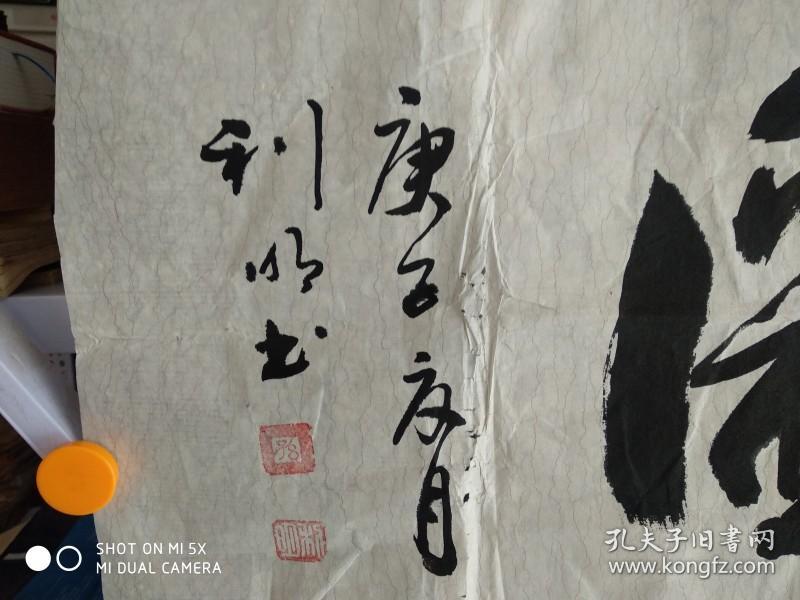 庚子夏月
利明书
SHOT ON MI 5X
MI DUAL CAMERA
孔夫子旧书网
www.kongfz.com